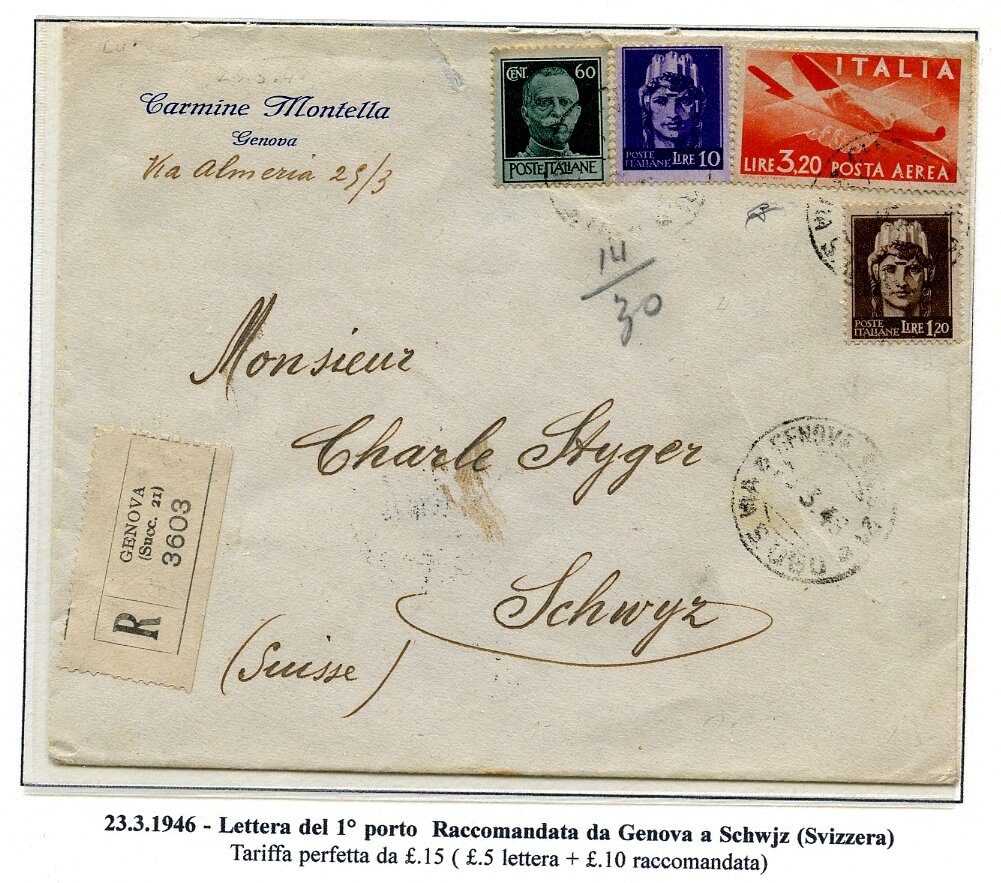 Carmine Montella
Genova
Via Almeria 29/3
CENT. 60
POSTE ITALIANE
POSTE ITALIANE LIRE 10
ITALIA
LIRE 3,20 POSTA AEREA
POSTE ITALIANE LIRE 1,20
14/30
Monsieur
Charle Styger
Schwyz
(Suisse)
R
GENOVA
(Succ. 21)
3603
GENOVA
23.3.1946 - Lettera del 1° porto Raccomandata da Genova a Schwjz (Svizzera)
Tariffa perfetta da £.15 ( £.5 lettera + £.10 raccomandata)